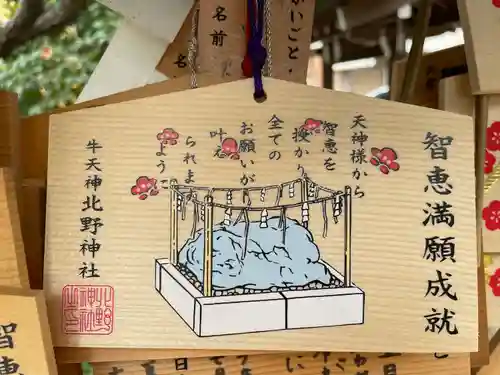 智恵満願成就
天神様から
智恵を
授かり
全ての
お願いが
叶え
られます
ように
牛天神北野神社
北野
神社
之印
名前
がいごと
智恵